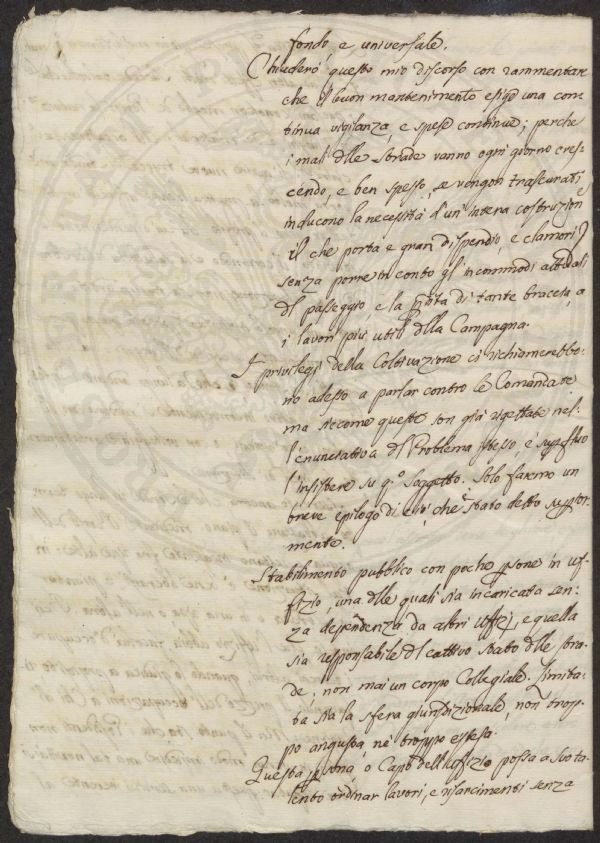 fondo, e universale.
Chiuderò questo mio discorso con rammentare
che il buon mantenimento esige una con-
tinua vigilanza, e spese continue; perche
i mali dlle strade vanno ogni giorno cres-
cendo, e ben spesso, se vengon trascurati,
inducono la necessità d'un intera costruzione
il che porta e gran dispendio, e clamori,
senza porre in conto gl'incommodi attuali
dl passeggio e la di tante braccia, a
i lavori più utili dlla Campagna.
I privilegi della Coltivazione ci richiamerebbo-
no adesso a parlar contro le Comandate
ma siccome queste son già rigettate nel-
l'enunciativa dl Problema istesso, è supfluo
l'insistere su q.o soggetto. Solo faremo un
breve epilogo di ciò, che è stato detto supior-
mente.
Stabilimento pubblico con poche psone in uf-
fizio, una dlle quali sia incaricata sen-
za dependenza da altri Uffizj, e quella
sia responsabile dl cattivo stato dlle stra-
de, non mai un corpo Collegiale. Limita-
ta sia la sfera giurisdizionale, non trop-
po angusta, nè troppo estesa.
Questa psona, o Capo dell'Uffizio possa a suo ta-
lento ordinar lavori, e risarcimenti senza